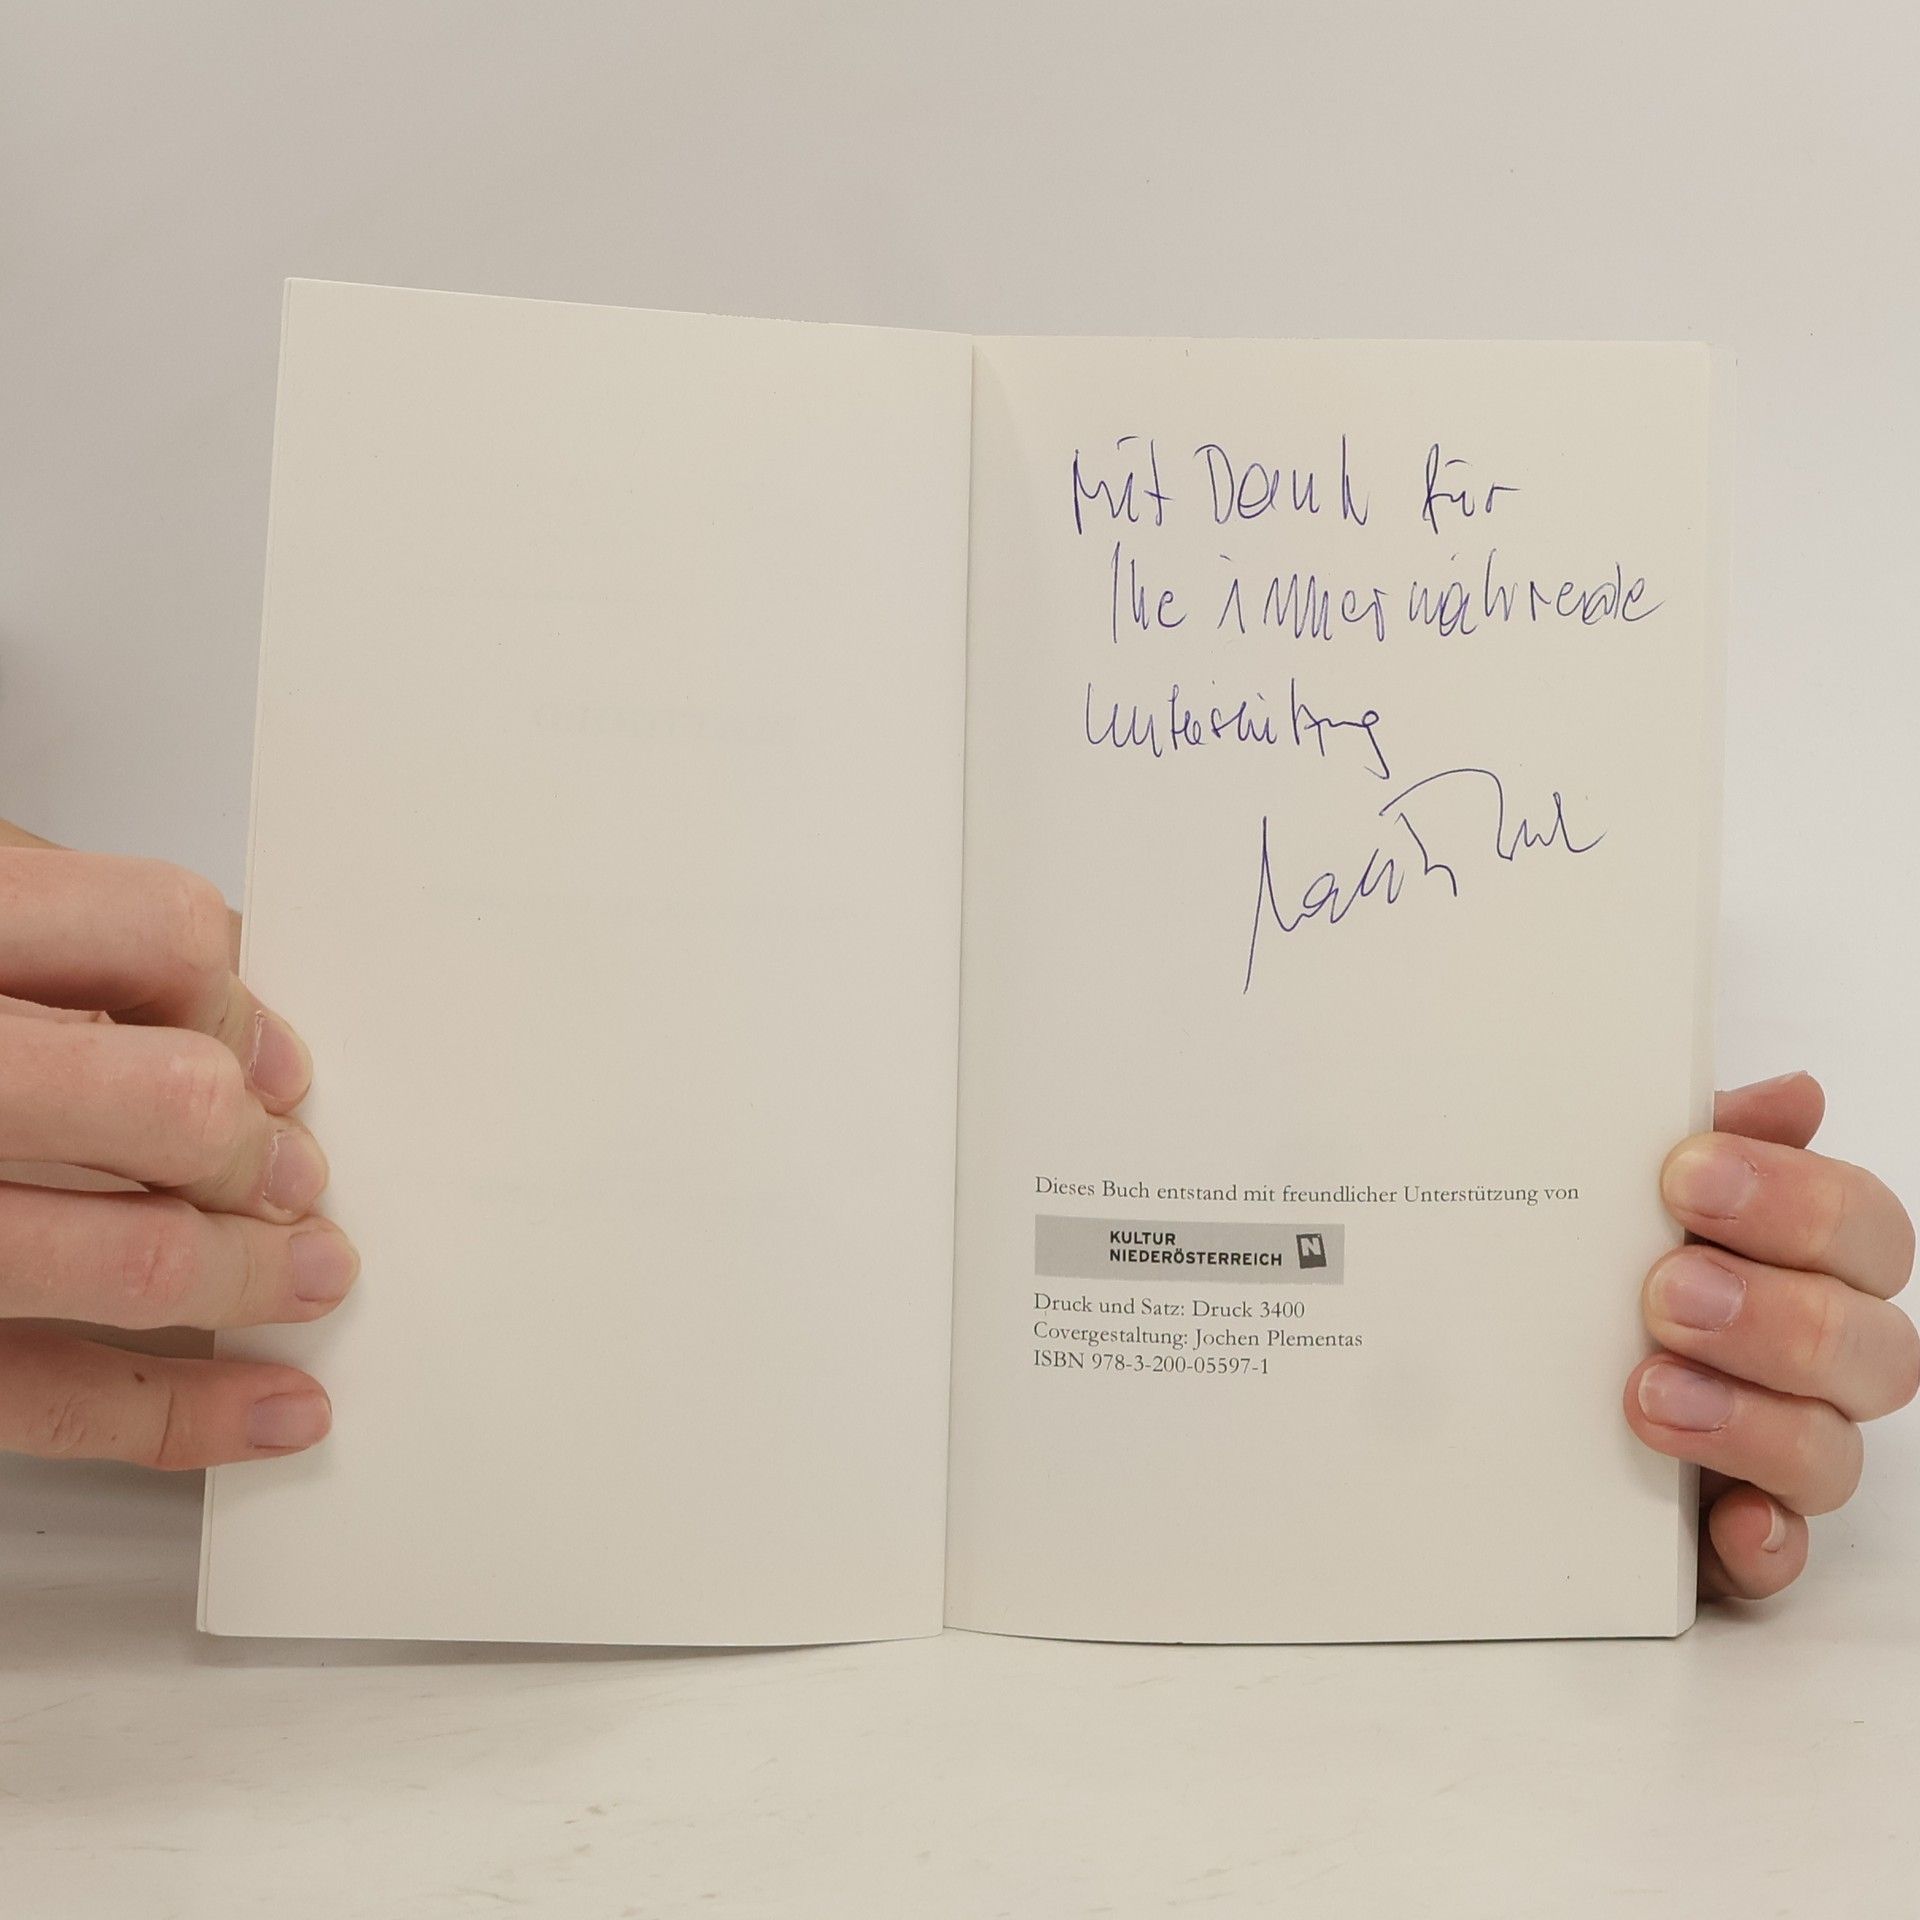 Mit Dank für
Ihre immerwährende
Unterstützung
Dieses Buch entstand mit freundlicher Unterstützung von
KULTUR
NIEDERÖSTERREICH N
Druck und Satz: Druck 3400
Covergestaltung: Jochen Plementas
ISBN 978-3-200-05597-1